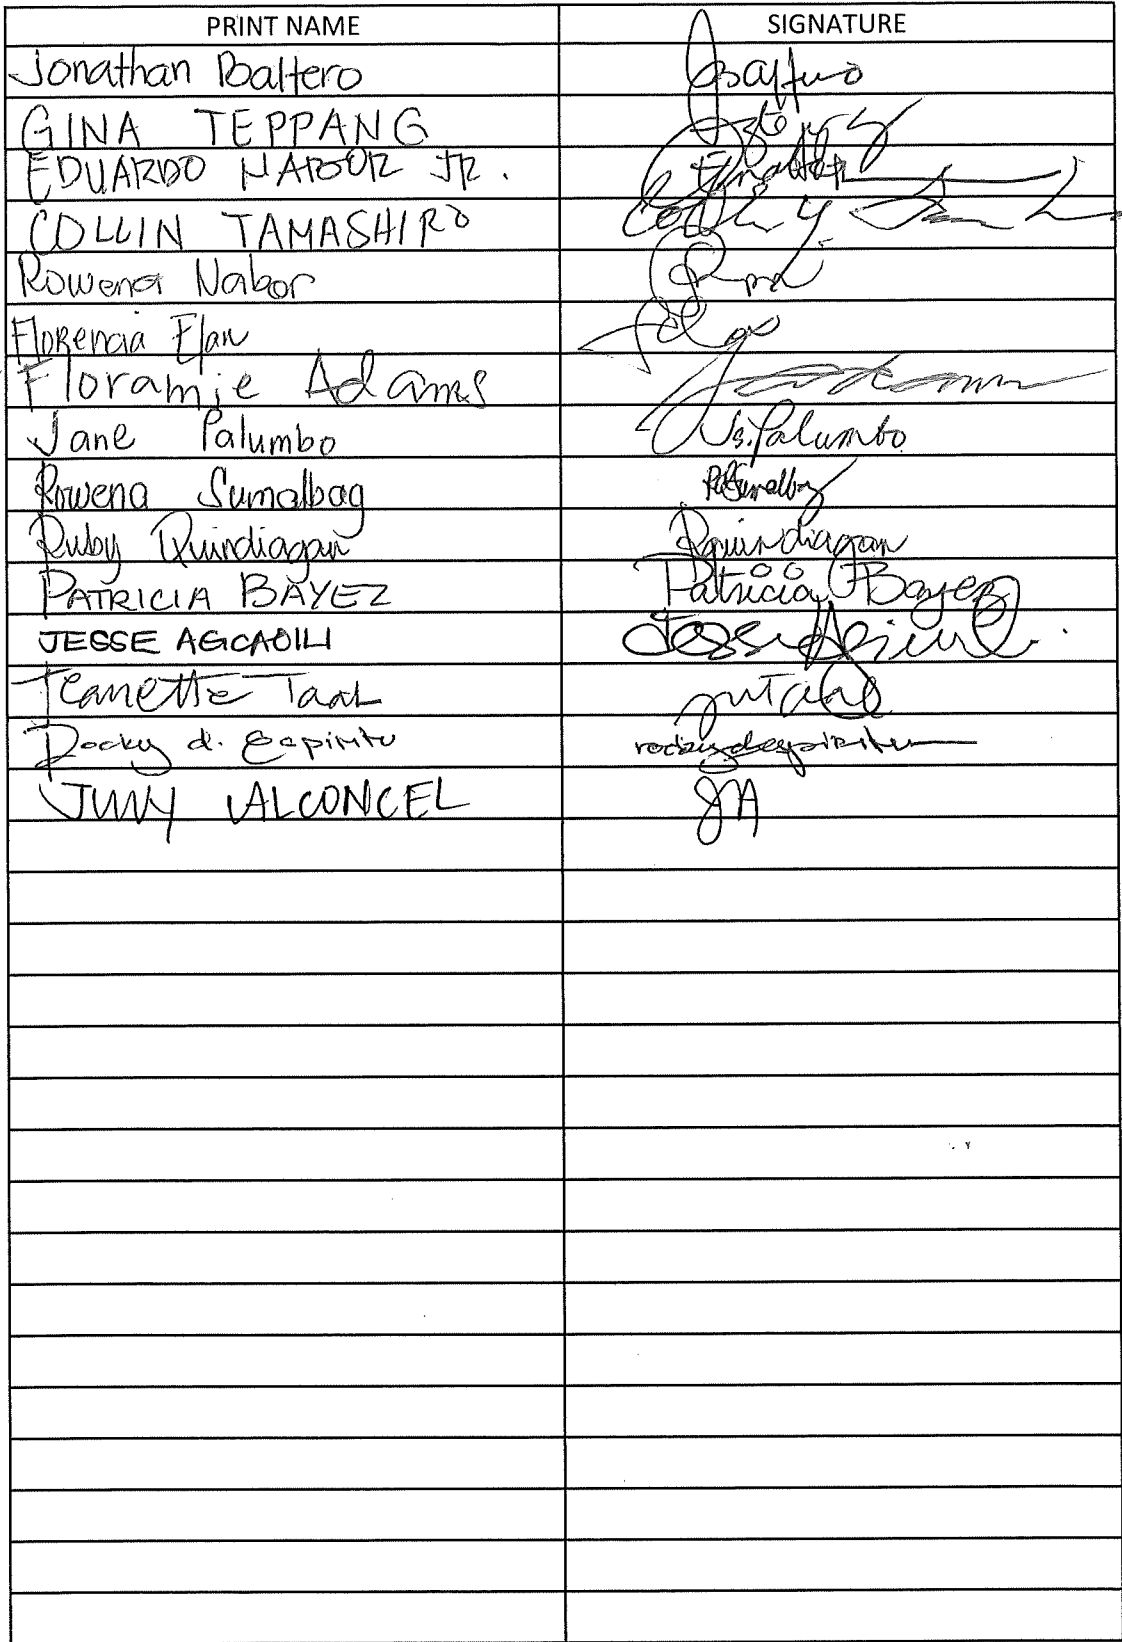 PRINT NAME SIGNATURE
Jonathan Baltero
GINA TEPPANG
EDUARDO NABOR JR.
COLLIN TAMASHIRO
Rowena Nabor
Florencia Elan
Floramie Adams
Jane Palumbo Js. Palumbo
Rowena Sumalbag
Ruby Quindiagan Rquindiagan
PATRICIA BAYEZ Patricia Bayez
JESSE AGCAOILI
Jeanette Taal
Rocky d. Espiritu rockydespiritu
JUNY VALCONCEL JA